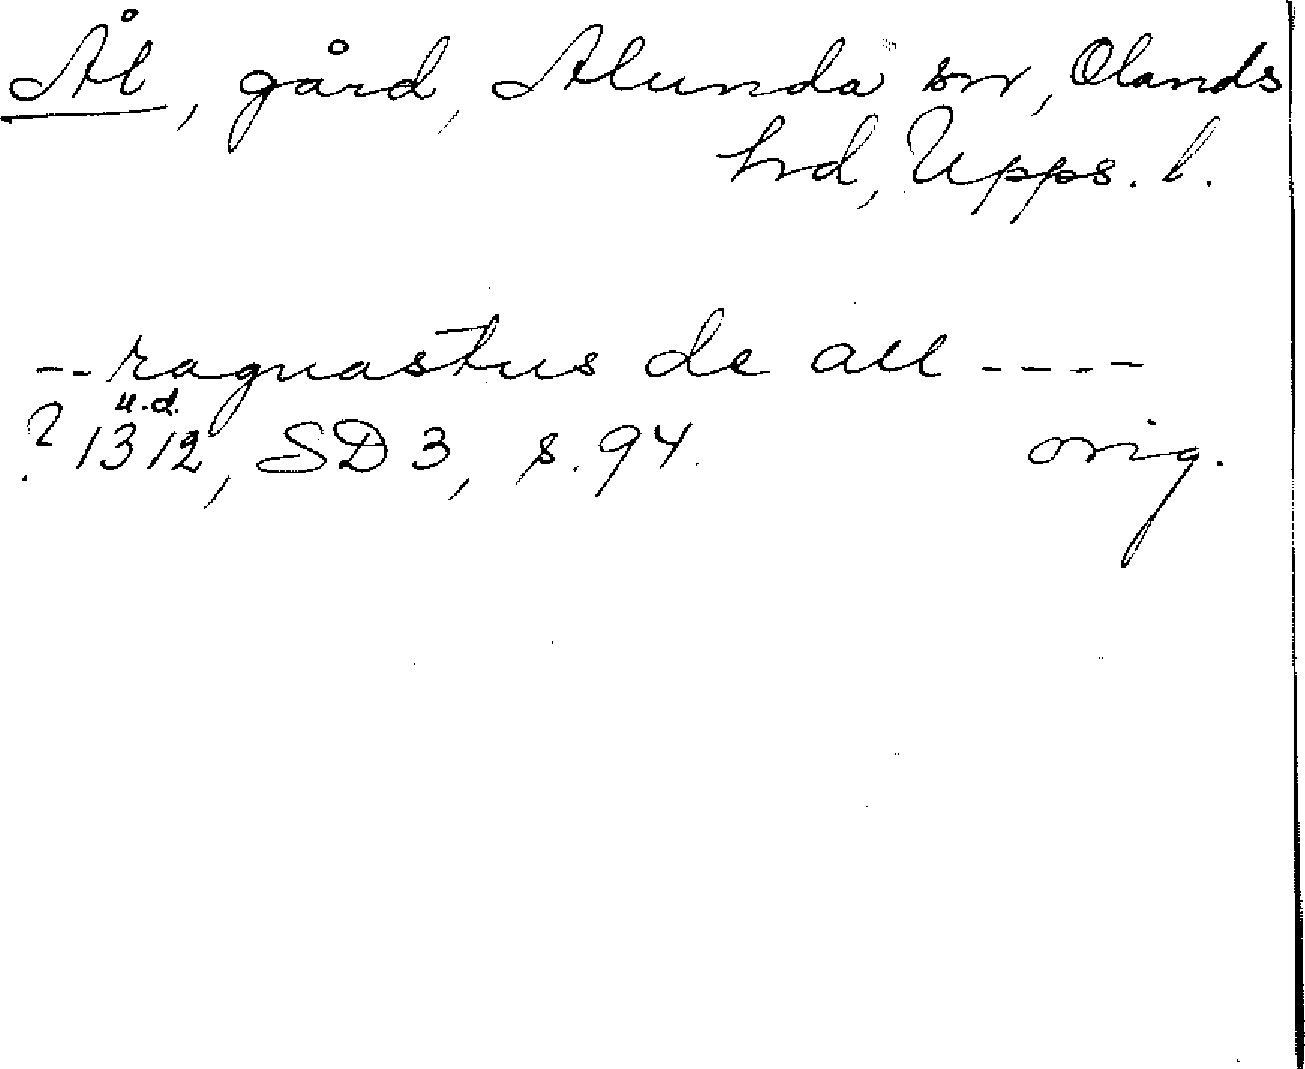 Ål, gård, Alunda sn, Olands
hd, Upps. l.
-- ragnastus de all ----
u.d.
? 1312, SD 3, s. 94. orig.